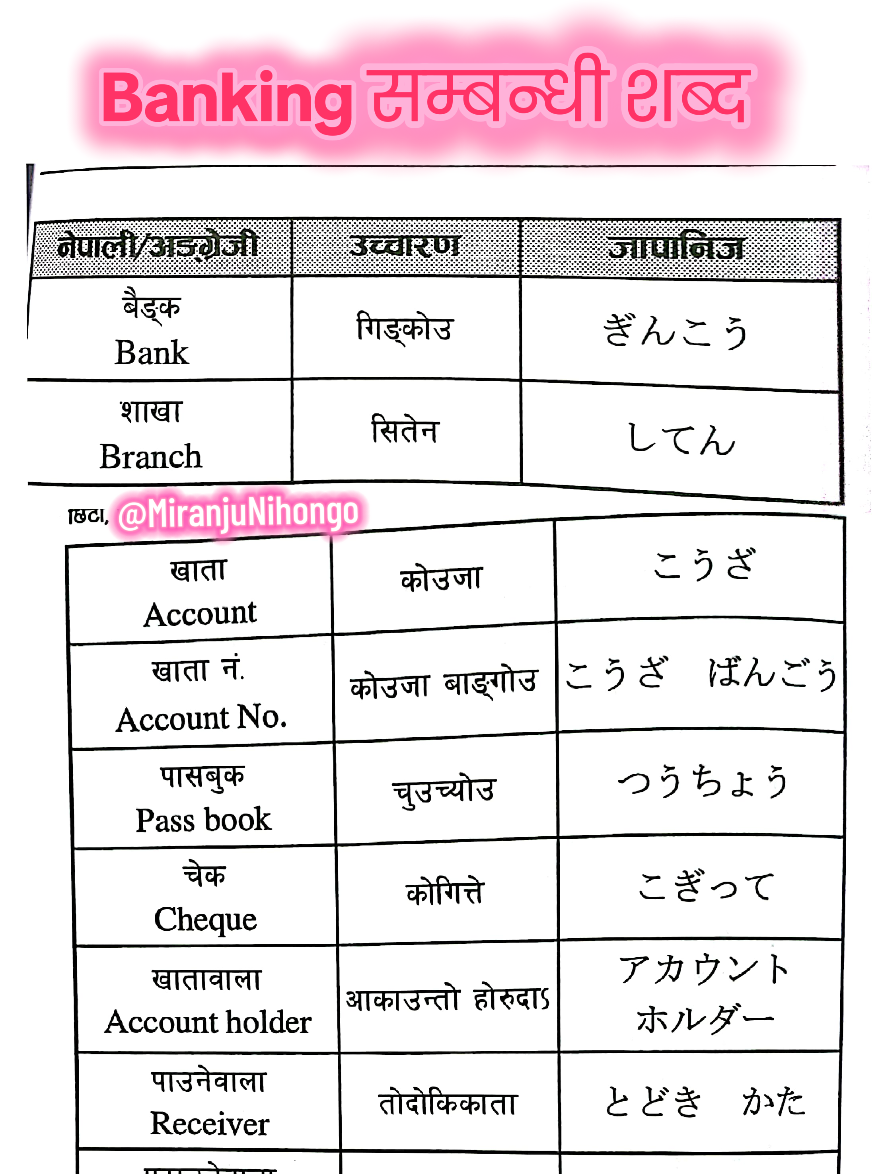 Banking सम्बन्धी शब्द
नेपाली/अङ्ग्रेजी उच्चारण जापानिज
बैङ्क
Bank
गिङ्कोउ
ぎんこう
शाखा
Branch
सितेन
してん
@MiranjuNihongo
खाता
Account
कोउजा
こうざ
खाता नं.
Account No.
कोउजा बाङ्गोउ
こうざ ばんごう
पासबुक
Pass book
चुउच्योउ
つうちょう
चेक
Cheque
कोगित्ते
こぎって
खातावाला
Account holder
आकाउन्तो होरुदाऽ
アカウント
ホルダー
पाउनेवाला
Receiver
तोदोकिकाता
とどき かた